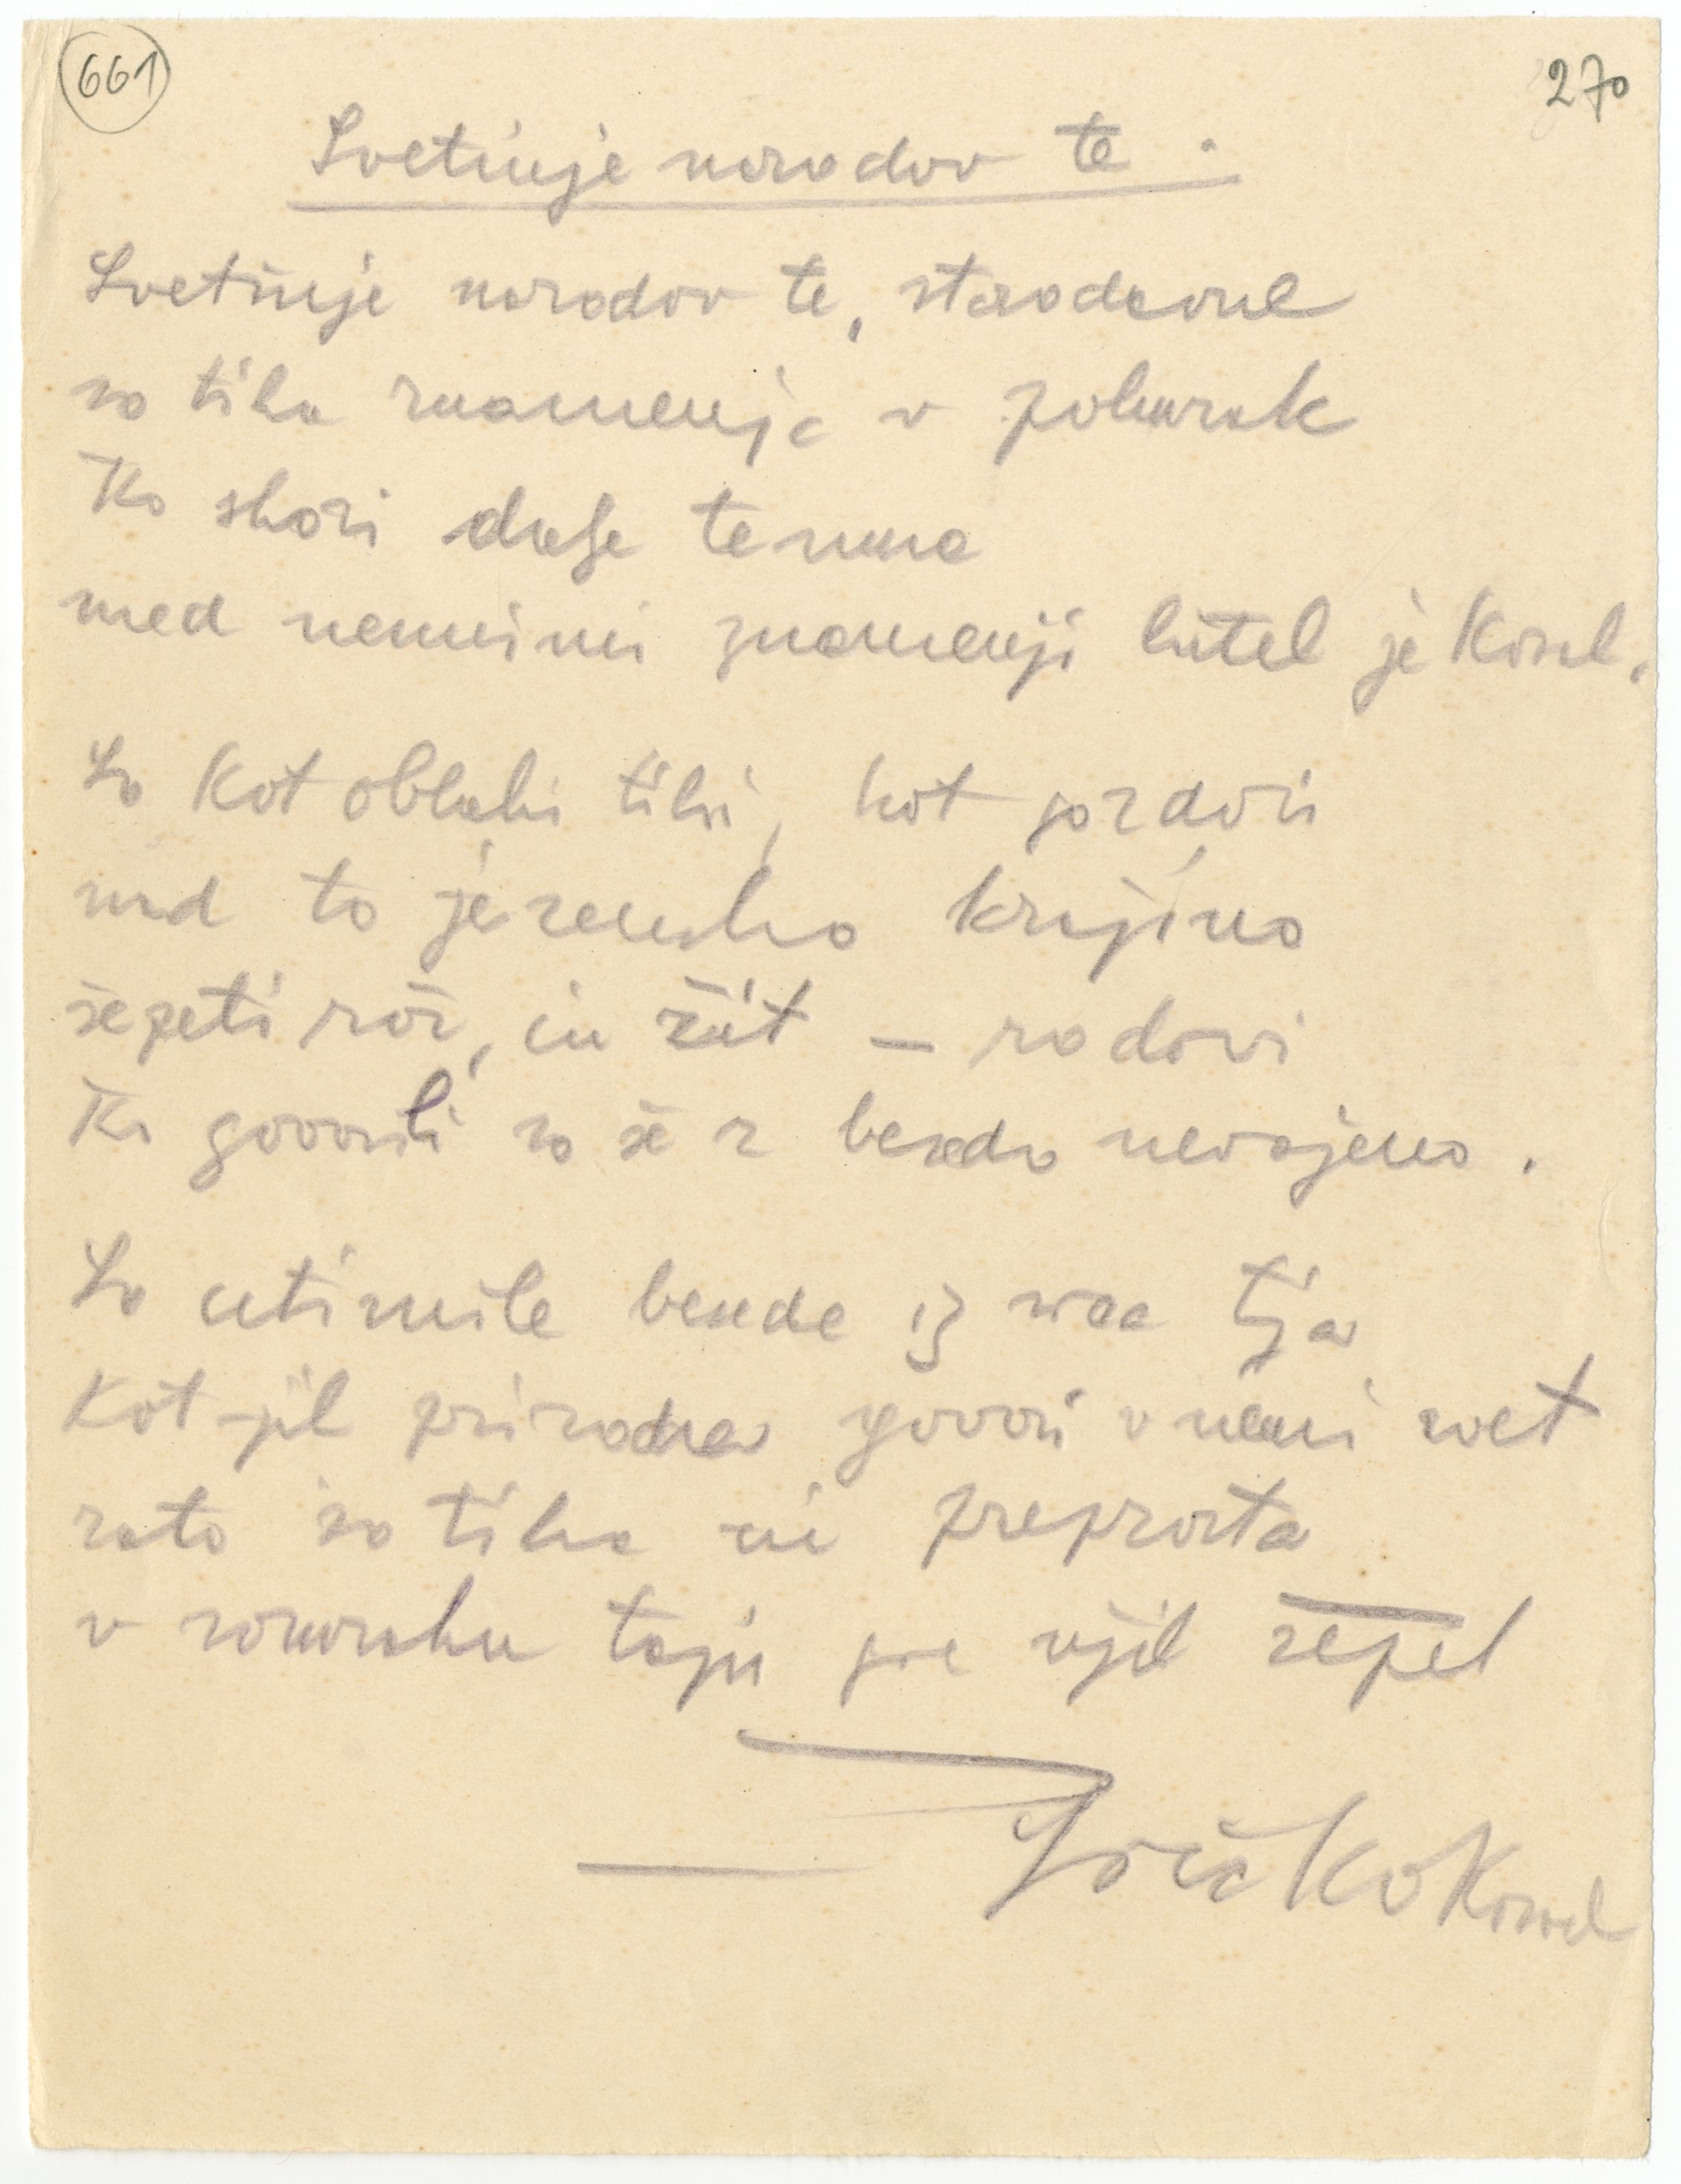 661
270
Svetinje narodov te.
Svetinje narodov te, starodavne
so tiha znamenja v polmrak
Ko skozi duše temne
med nemimi znamenji hitel je korak.
So kot oblaki tihi, kot gozdovi
nad to jezersko krajino
šepeti rož, in žit – rodovi
Ki govorili so še z besedo nevajeno.
So utišnile besede iz
Kot jih priroda govori v nemi svet
zato so tiha in preprosta
v somraku taji gre njih šepet
Srečko Kosovel